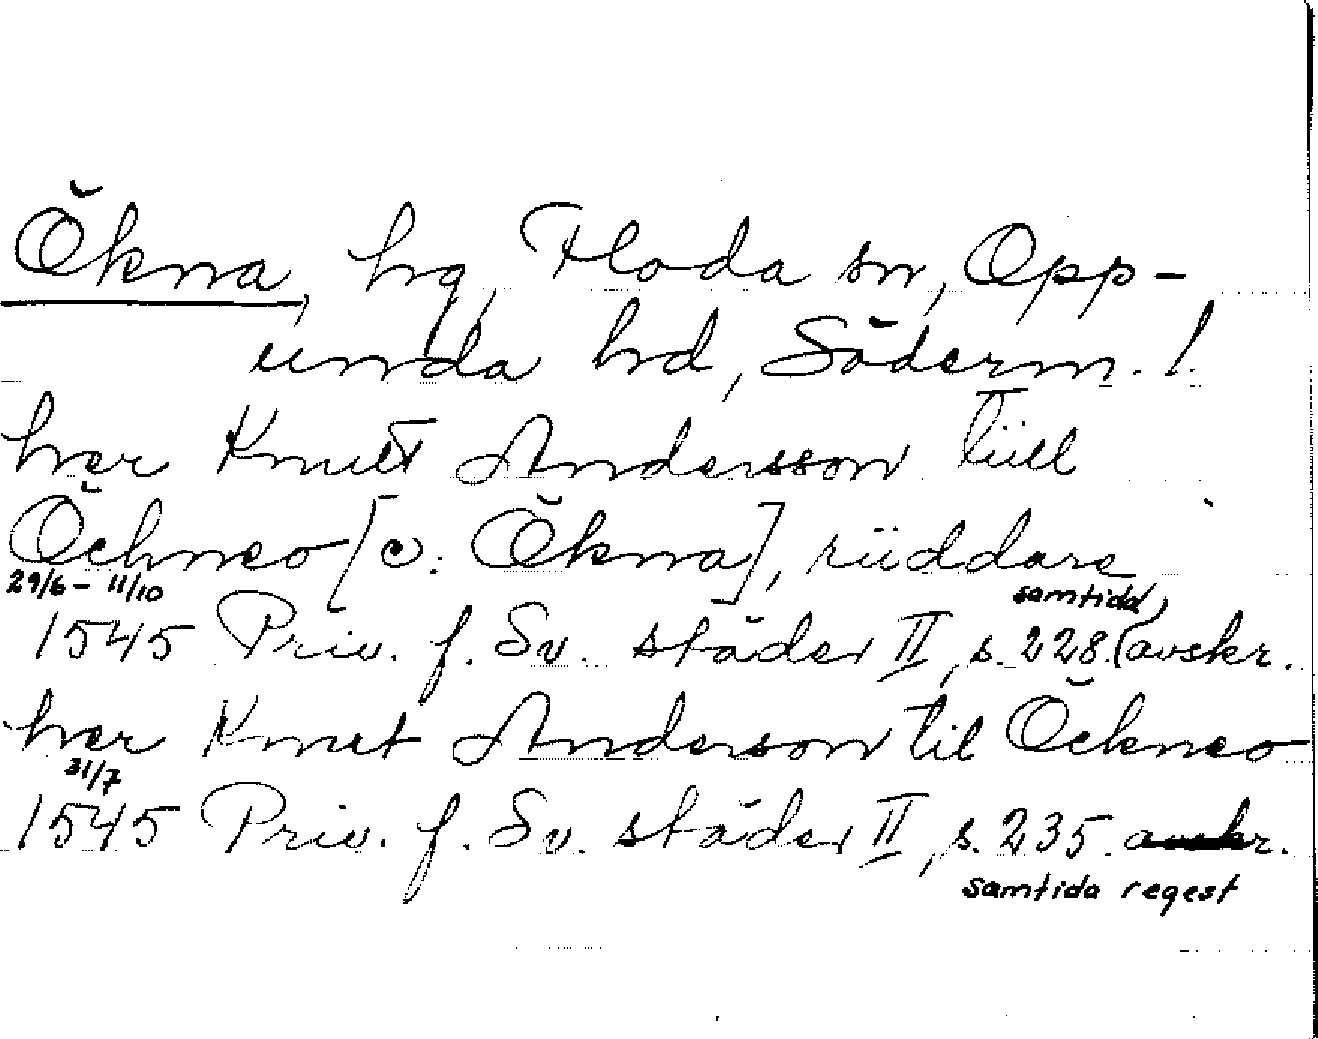 Ökna, hg, Floda sn, Opp-
unda hd, Söderm. l.
her Knutt Andersson tiill
Öckneo [ɔ: Ökna], riiddare
29/6 – 11/10 samtida
1545 Priv. f. Sv. städer II, s. 228. (avskr.
her Knut Anderson til Öckneo
31/7
1545 Priv. f. Sv. städer II, s. 235. avskr.
samtida regest